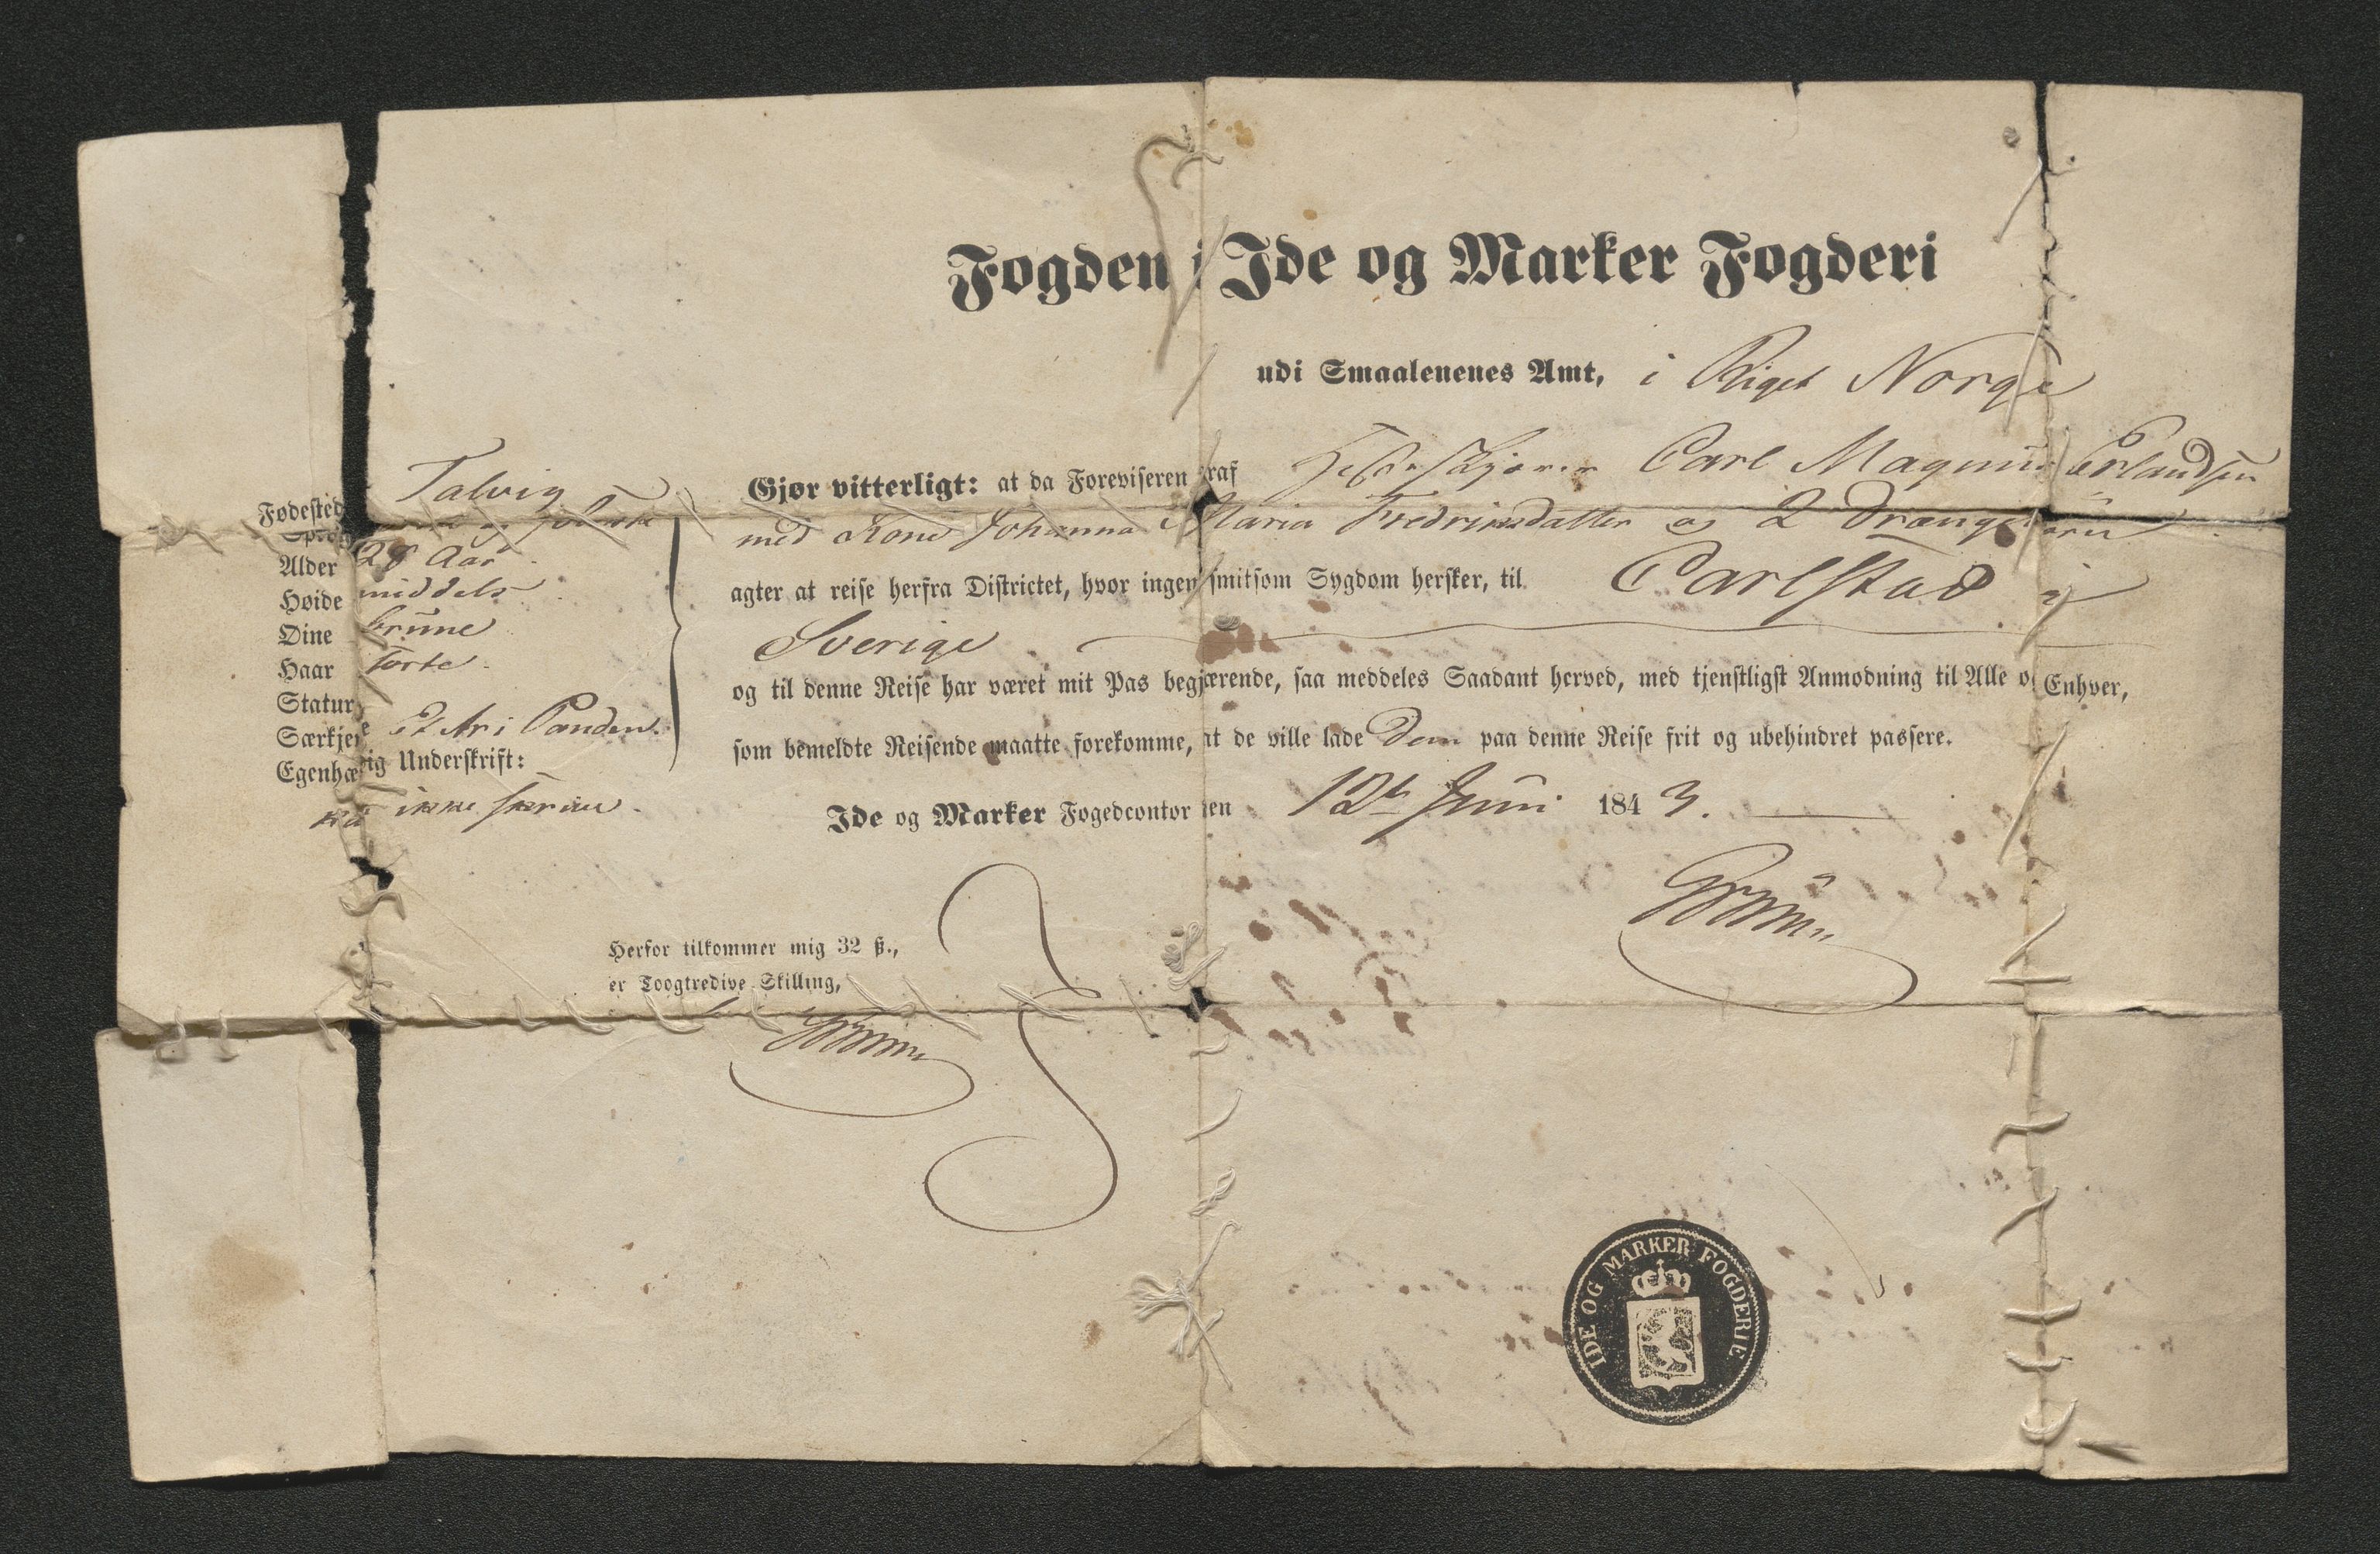 Fogden i Ide og Marker Fogderi
udi Smaalenenes Amt, i Riget Norge
Gjør vitterligt: at da Foreviseren af Carl Magnus Erlandsen
med Kone Johanna Maria Fredriksdatter og 2 Drengebørn
agter at reise herfra Districtet, hvor ingen smitsom Sygdom hersker, til Carlstad i
Sverige
og til denne Reise har været mit Pas begjærende, saa meddeles Saadant herved, med tjenstligst Anmodning til Alle og Enhver,
som bemeldte Reisende maatte forekomme, at de ville lade Dem paa denne Reise frit og ubehindret passere.
Ide og Marker Fogedcontor den 12te Juni 1843.
Fødested Talvig
Alder 28 Aar
Høide middels
Øine brune
Haar sorte
Statur
Særkjende Et Ar i Panden.
Egenhændig Underskrift:
ikke skrive.
Herfor tilkommer mig 32 ß.,
er Toogtredive Skilling,
IDE OG MARKER FOGDERIE